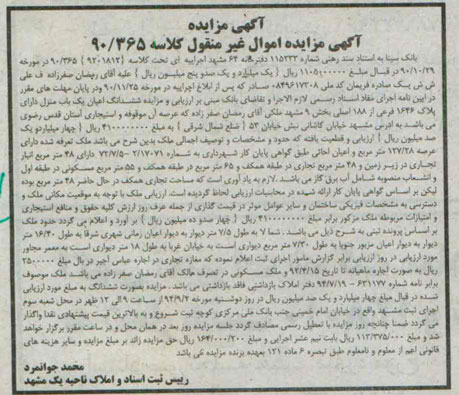 آگهی مزایده
آگهی مزایده اموال غیر منقول کلاسه ۹۰/۳۶۵
بانک سینا به استناد سند رهنی شماره ۱۱۵۲۳۲ دفترخانه ۶۴ مشهد اجراییه ای تحت کلاسه (۹۲۰۱۸۱۲) ۹۰/۳۶۵ در مورخه
۹۰/۱۰/۲۹ در قبال مبلغ ۱۱۰۵۰۰۰۰۰۰ ریال (یک میلیارد و یک صدو پنج میلیون ریال) علیه آقای رمضان صفرزاده ف علی
ش ش یک صادره فریمان کد ملی ۰۸۴۹۶۱۷۳۰۸ صادر که پس از ابلاغ اجراییه در مورخه ۹۰/۱۱/۲۵ و در پایان مهلت های مقرر
در آیین نامه اجرای مفاد اسناد رسمی لازم الاجرا و تقاضای بانک مبنی بر ارزیابی و مزایده ششدانگ اعیان یک باب منزل دارای
پلاک ۱۶۴۶ فرعی از ۱۸۸ اصلی بخش ۹ مشهد ملکی آقای رمضان صفر زاده که عرصه آن موقوفه و استیجاری آستان قدس رضوی
می باشد به آدرس مشهد خیابان کاشانی نبش خیابان ۵۳ (ضلع شمال شرقی) به مبلغ ۴۱۰۰۰۰۰۰۰۰ ریال (چهار میلیارد و یک
صد میلیون ریال) ارزیابی و قطعیت یافته که حدود و مشخصات و توصیف اجمالی ملک بدین شرح می باشد ملک تعرفه شده دارای
عرصه ۱۲۷/۲۸ متر مربع و اعیان احداثی طبق گواهی پایان کار شهرداری به شماره
تجاری در زیر زمین و ۴۸ متر مربع تجاری در طبقه همکف و ۶۵ متر مربع در طبقه همکف و ۵۵ متر مربع مسکونی در طبقه اول
و انشعاب منصوبه شامل آب برق گاز می باشد. لازم به یاد آوری است که سطح تجاری همکف در حال حاضر ۴۸ متر مربع بوده
لیکن بر اساس گواهی پایان کار ارائه شده در محاسبات ارزیابی لحاظ گردیده است. ارزیابی ملک با توجه به موقعیت مکانی ملک و
دسترسی به مشخصات فیزیکی ساختمان و سایر عوامل موثر در قیمت گذاری از جمله عرف روز ارزش کلیه حقوق و منافع استیجاری
و امتیازات مربوطه ملک مزکور برابر مبلغ ۴۱۰۰۰۰۰۰۰۰ ریال (چهار صدو ده میلیون ریال) بر آورد و اعلام می گردد حدود ملک
بر اساس پرونده ثبتی به شرح ذیل می باشد. شما ۷ به طول ۷/۵ متر دیوار به دیوار اعیان زمانی شهری شرقا به طول ۱۶/۴۰ متر
دیوار به دیوار اعیان مزبور جنوبا به طول ۷/۳۰ متر مربع دیواری است به خیابان غربا به طول ۱۸ متر دیواری است به معبر مجاور
مورد ارزیابی در روز ارزیابی برابر گزارش مامور اجرای ثبت اعلام نموده که مغازه تجاری در اجاره عباس آجیر در بال مبلغ ۲۵۰۰۰۰۰
ریال به صورت اجاره ماهیانه تا تاریخ ۹۲/۴/۱۵ و ملک مسکونی در تصرف مالک آقای رمضان صفر زاده می باشد ملک موصوف
برابر نامه شماره ۶۳۱۱۷۷ - ۹۴/۷/۱۹ دفتر املاک بازداشتی فاقد بازداشتی می باشد. مزایده بصورت ششدانگ به مبلغ مورد ارزیابی
شده در قبال مبلغ چهار میلیارد و یک صد میلیون ریال در روز دوشنبه مورخه ۹۲/۹/۲ از ساعت ۹ الی ۱۲ ظهر در محل شعبه سوم
اجرای ثبت مشهد واقع در خیابان امام خمینی جنب بانک ملی مرکزی کوچه ثبت شروع و به بالاترین قیمت پیشنهادی نقدا واگذار
می گردد ضمنا چنانچه روز مزایده با تعطیل رسمی مصادف گردد جلسه مزایده روز بعد در همان محل و در ساعت مقرر برگزار خواهد
شد و مبلغ ۱۱۲/۳۷۵/۰۰۰ ریال بابت نیم عشر اجرایی و مبلغ ۱۶۴/۰۰۰/۲۰۰ ریال حق مزایده زائد بر مبلغ مزایده و سایر هزینه های
قانونی اعم از معلوم و نامعلوم طبق تبصره ۶ ماده ۱۲۱ بعهده برنده مزایده می باشد
محمد جوانمرد
رییس ثبت اسناد و املاک ناحیه یک مشهد